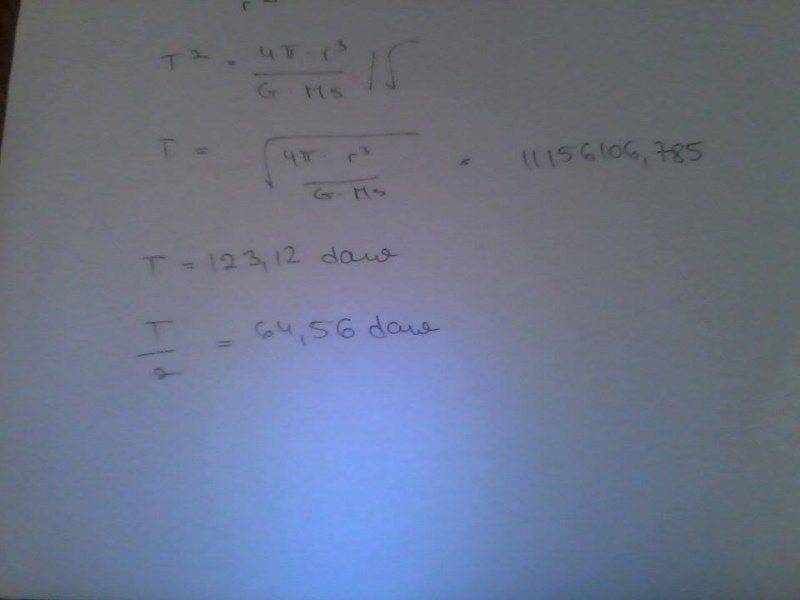 T² = 4π · r³ / G · Ms /√
T = √(4π · r³ / G · Ms) = 11156106,785
T = 123,12 dana
T/2 = 64,56 dana